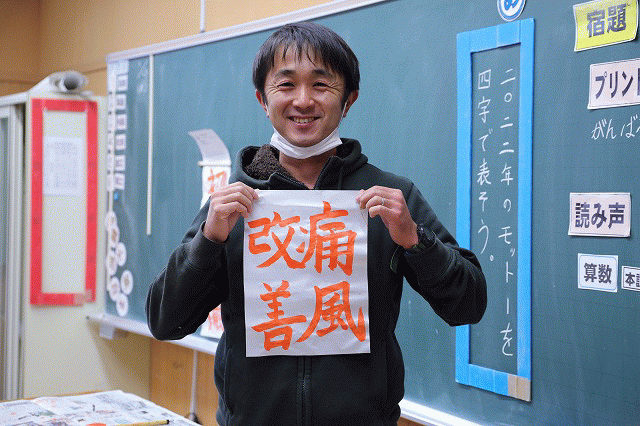 痛風
改善
二〇二二年のモットーを
四字で表そう。
宿題
プリント
がんば
読み声
算数
本